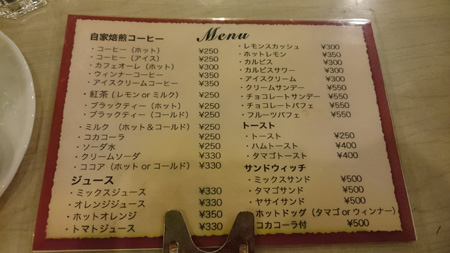 Menu
自家焙煎コーヒー
・コーヒー（ホット） ¥250
・コーヒー（アイス） ¥250
・カフェオーレ（ホット） ¥300
・ウィンナーコーヒー ¥350
・アイスクリームコーヒー ¥350
・紅茶（レモン or ミルク） ¥250
・ブラックティー（ホット） ¥250
・ブラックティー（コールド） ¥250
・ミルク （ホット＆コールド） ¥250
・コカコーラ ¥250
・ソーダ水 ¥250
・クリームソーダ ¥330
・ココア（ホット or コールド） ¥330
ジュース
・ミックスジュース ¥330
・オレンジジュース ¥330
・ホットオレンジ ¥350
・トマトジュース ¥330
・レモンスカッシュ ¥300
・ホットレモン ¥350
・カルピス ¥300
・カルピスサワー ¥300
・アイスクリーム ¥300
・クリームサンデー ¥550
・チョコレートサンデー ¥550
・チョコレートパフェ ¥550
・フルーツパフェ ¥550
トースト
・トースト ¥250
・ハムトースト ¥400
・タマゴトースト ¥400
サンドウィッチ
・ミックスサンド ¥500
・タマゴサンド ¥500
・ヤサイサンド ¥500
ホットドッグ（タマゴ or ウィンナー）
コカコーラ付 ¥500